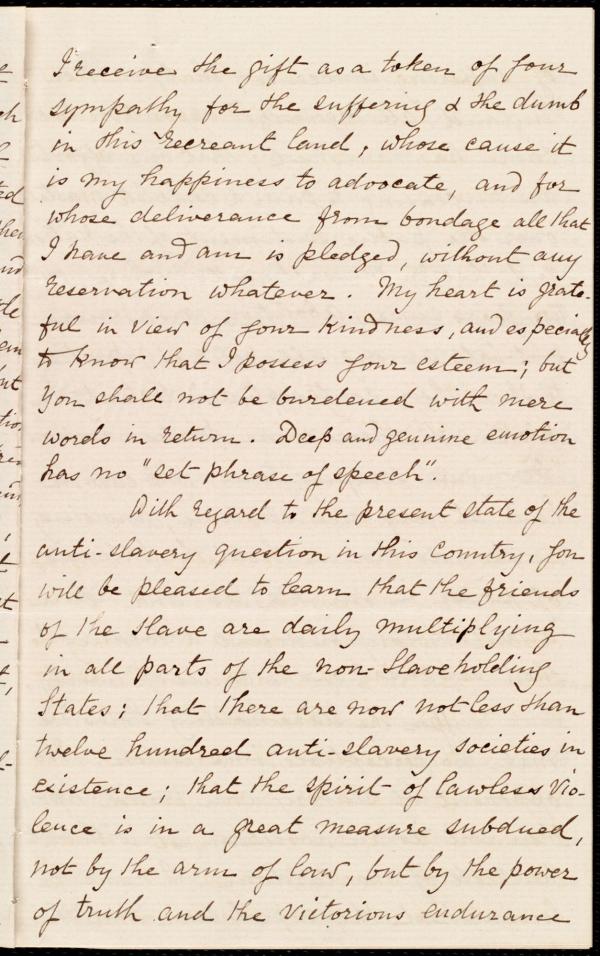 I receive the gift as a token of your
sympathy for the suffering & the dumb
in this recreant land, whose cause it
is my happiness to advocate, and for
whose deliverance from bondage all that
I have and am is pledged, without any
reservation whatever. My heart is grate-
ful in view of your kindness, and especially
to know that I possess your esteem; but
you shall not be burdened with mere
words in return. Deep and genuine emotion
has no "set phrase of speech".
With regard to the present state of the
anti-slavery question in this Country, you
will be pleased to learn that the friends
of the slave are daily multiplying
in all parts of the non-slaveholding
States; that there are now not less than
twelve hundred anti-slavery societies in
existence; that the spirit of lawless vio-
lence is in a great measure subdued,
not by the arm of law, but by the power
of truth and the victorious endurance